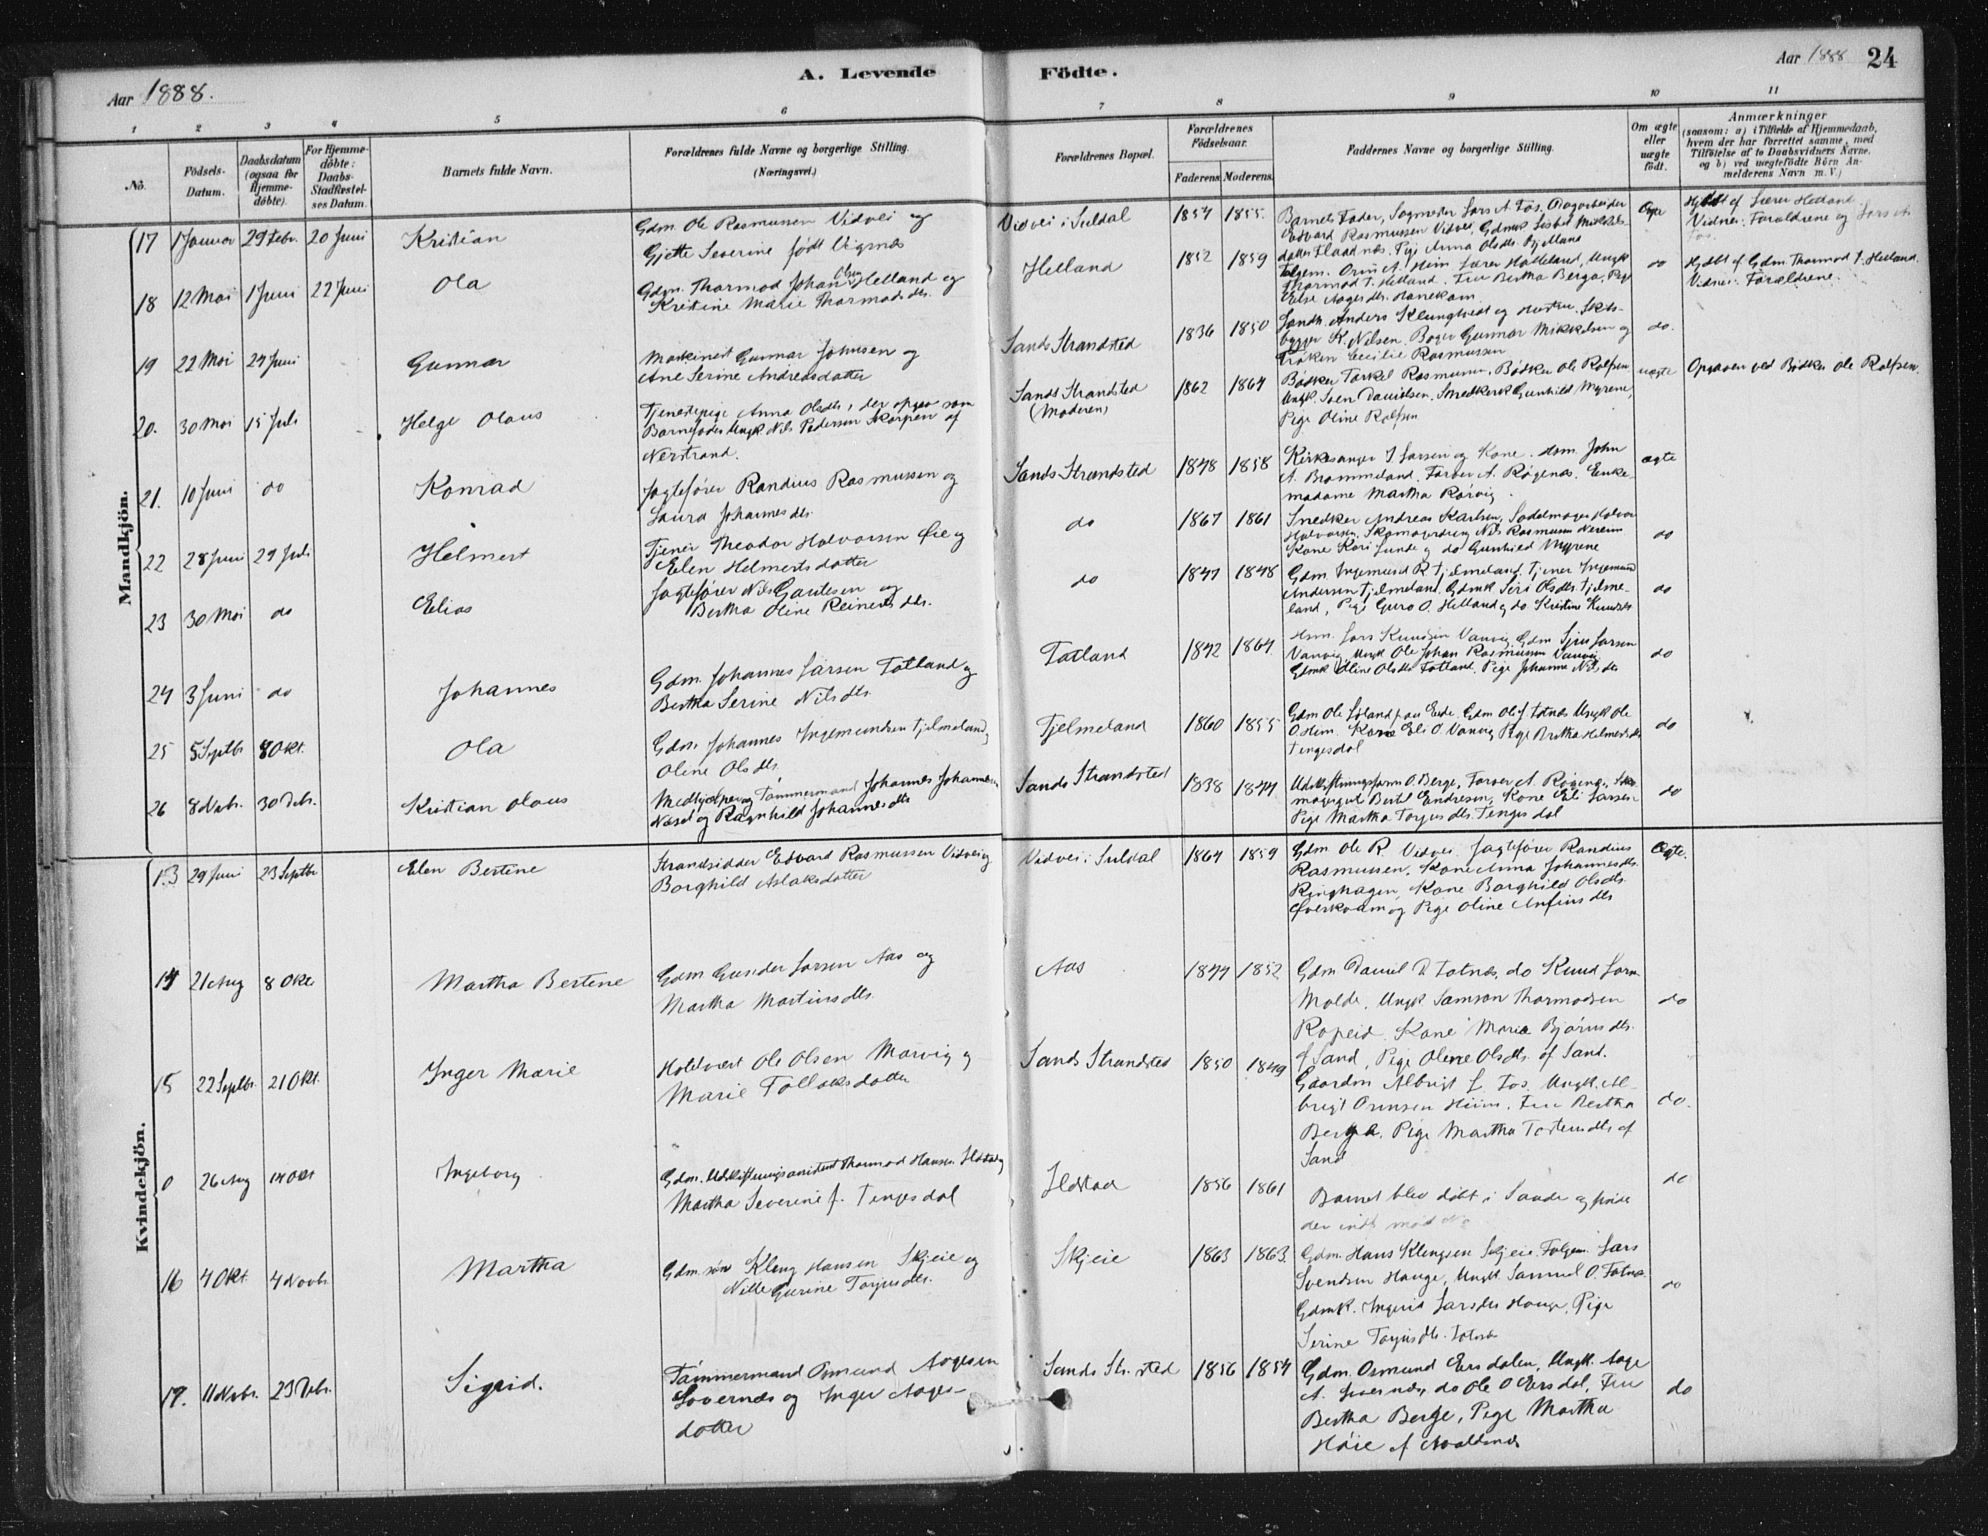 Aar 1888.
A. Levende
Födte.
Aar 1888
24
1 2 3 4 5 6 7 8 9 10 11
No.
Födsels-Datum.
Daabsdatum (ogsaa for Hjemme-döbte).
For Hjemme-döbte: Daabs-Stadfæstel-ses Datum.
Barnets fulde Navn.
Forældrenes fulde Navne og borgerlige Stilling.
(Næringsvei.)
Forældrenes Bopæl.
Forældrenes Födselsaar.
Faderens. Moderens.
Faddernes Navne og borgerlige Stilling.
Om ægte eller uægte födt.
Anmærkninger
(saasom: a) i Tilfælde af Hjemmedaab, hvem der har forrettet samme, med Tilföielse af to Daabsvidners Navne, og b) ved uegtefödte Börn An-melderens Navn m. V.)
Mandkjön.
17 1 Januar 29 Febr. 20 Juni Kristian
Gdm. Ole Rasmussen Vidvei og
Gjette Severine født Vignæs
Vidvei i Suldal 1857 1855.
Barnets Fader, Sagmester Lars A. Fos, Dagarbeider
Edvard Rasmussen Vidvei, Gdmk Lisbet Mikkels-
datter Pige Anna Olsdtr. Bjelland
Ægte
Hjdbt af Lærer Helland
Vidner: Forældrene og Lars A.
Fos.
18 12 Mai 1 Juni 22 Juni Ola
Gdm. Thormod Johan Olsen Helland og
Kristine Marie Thormodsdtr.
Helland 1852 1859
Thormod T. Helland. Fru Bertha Berge, Pige
Else Aagesdtr. Hanekam
do
Hjdbt af Gdm. Thormod T. Helland.
Vidner: Forældrene.
19 22 Mai 24 Juni Gunnar
Maskinist Gunnar Johnsen og
Ane Serine Andreasdatter
Sands Strandsted 1836 1850
Landh. Anders Klungtvedt og Hustru. Skibs-
bygger K. Nilsen. Bager Gunnar Mikkelsen og
Frøken Cecilie Rasmussen
do.
20. 30 Mai 15 Juli Helge Olaus
Tjenestepige Anna Olsdtr., der opgav som
Barnefader Ungk. Nils Pedersen Skorpen af
Nerstrand.
Sands Strandsted
(Moderen)
1862 1864
Bødker Torkel Rasmussen, Bødker Ole Rolfsen,
Ungk. Sven Davidsen, Snedkerk. Gunhild Myrene,
Pige Oline Rolfsen
uægte
Opgaven ved Bødker Ole Rolfsen.
21. 10 Juni do Konrad
Jagtefører Randius Rasmussen og
Laura Johannesdtr.
Sands Strandsted 1848 1858
Kirkesanger J. Larsen og Kone. Hsm. John
A. Brommeland, Farver A. Røgenæs, Enke-
madame Martha Rørvig.
ægte
22 28 Juni 29 Juli Helmert
Tjener Theodor Halvorsen Øie og
Elen Helmertsdatter
do 1867 1861
Snedker Andreas Karlsen, Sadelmager Halvor
Halvorsen, Skomagerdreng Nils Rasmussen Nereim
Kone Kari Sunde og do Gunhild Myrene
do
23 30 Mai do Elias
Jagtefører Nils Gautesen og
Bertha Oline Reinertsdtr.
do 1847 1848
Gdm Ingemund R. Tjelmeland, Tjener Ingemund
Andersen Tjelmeland, Gdmk Siri Olsdtr. Tjelme-
land, Pige Guro O. Helland og do Kristine Knudsdtr
do
24 3 Juni do Johannes
Gdm. Johannes Larsen Fatland og
Bertha Serine Nilsdtr.
Fatland 1842 1864
Hsm. Lars Knudsen Vanvig Gdm Sjur Larsen
Vanvig Ungk Ole Johan Rasmussen Vanvig
Gdmk Oline Olsdtr Fatland, Pige Johanne Nilsdtr
do
25 5 Septbr 8 Okt. Ola
Gdm. Johannes Ingemundsen Tjelmeland,
Oline Olsdtr.
Tjelmeland 1860 1855
Tengesdal
do
26 8 Novbr. 30 Debr. Kristian Olaus
Medhjelper og Tømmermand Johannes Johannesen
Næset og Ragnhild Johannesdtr
Sands Strandsted 1838 1844
Udskiftningsform. O. Berge, Farver A. Røgenes, Sko-
magersvd Bertel Endresen, Kone Eli Larsen
Pige Martha Torjusdtr. Tengesdal
do
Kvindekjön.
13 29 Juni 23 Septbr Elen Bertine
Strandsidder Edvard Rasmussen Vidvei og
Borghild Aslaksdatter
Vidvei i Suldal 1864 1859
Gdm Ole R. Vidvei. Jagtefører Randius
Rasmussen, Kone Anna Johannesdtr.
Ringhagen, Kone Borghild Olsdtr.
Øverkvam og Pige Oline Anfinsdtr
Ægte.
14 21 Aug 8 Okt Martha Bertine
Gdm Gunder Larsen Aas og
Martha Martinsdtr.
Aas 1844 1852
Gdm Daniel D. Fatnæs, do Knud Larsen
Molde, Ungk Samson Thormodsen
Ropeid, Kone Marie Bjørnsdtr.
af Sand, Pige Oline Olsdtr. af Sand.
do
15 22 Septbr. 21 Okt. Inger Marie
Hotelvært Ole Olsen Marvig og
Marie Tollaksdatter
Sands Strandsted 1850 1849
Gaardm Albrigt L. Fos, Ungk. Al-
brigt Ormsen Hiim, Fru Bertha
Berge, Pige Martha Torstensdtr. af
Sand
do.
0 26 Aug 14 Okt Ingeborg
Gdm. Udskiftningsassistent Thormod Hansen Ilstad og
Martha Severine f. Tengesdal
Ilstad 1856 1861
Barnet blev døbt i Saude og findes
der indt med No
do
16 4 Okt. 4 Novbr. Martha
Gdm.søn Kleng Hansen Skjeie og
Nille Gurine Torjusdtr.
Skjeie 1863 1863.
Gdm. Hans Klengsen Skjeie. Folgem. Lars
Svendsen Hauge, Ungk. Samuel O. Fatnæs.
Gdmk. Ingerid Larsdtr Hauge, Pige
Serine Torjusdtr. Fatnæs
do
17. 11 Novbr. 23 Debr. Sigrid.
Tømmermand Osmund Aagesen
Lovernæs og Inger Aages-
datter
Sands Str.sted 1856 1854
Gdm. Osmund Eersdalen, Ungk. Aage
A. Lovernæs, do Ole O. Eersdal, Fru
Bertha Berge, Pige Martha
Høie af Avaldsnæs
do